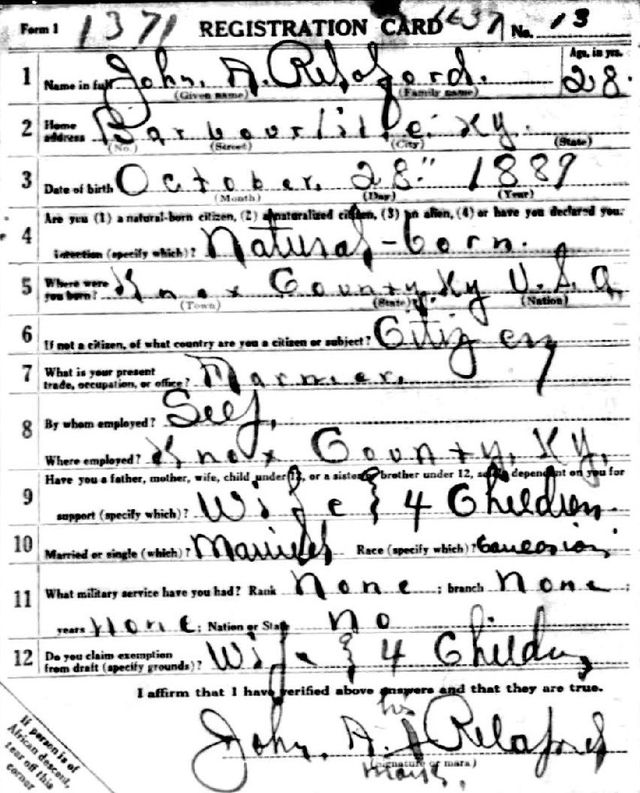 Form 1 1371 REGISTRATION CARD 1637 No. 13
1 Name in full John. A. Relaford. Age, in yrs. 28.
(Given name) (Family name)
2 Home address Barbourville. Ky.
(No.) (Street) (City) (State)
3 Date of birth October. 28" 1889
(Month) (Day) (Year)
Are you (1) a natural-born citizen, (2) a naturalized citizen, (3) an alien, (4) or have you declared your
4 intention (specify which)? Natural-born.
5 Where were you born? Knox County. Ky U.S.A
(Town) (State) (Nation)
6 If not a citizen, of what country are you a citizen or subject? Citizen
7 What is your present trade, occupation, or office? Farmer.
8 By whom employed? Self,
Where employed? Knox County, Ky,
Have you a father, mother, wife, child under 12, or a sister or brother under 12, solely dependent on you for
9 support (specify which)? Wife & 4 Children.
10 Married or single (which)? Married Race (specify which)? Caucasian
11 What military service have you had? Rank None ; branch None ;
years None ; Nation or State No
12 Do you claim exemption from draft (specify grounds)? Wife & 4 Children
I affirm that I have verified above answers and that they are true.
his
John. A. X Relaford
(Signature or mark)
mark.
If person is of
African descent,
tear off this
corner